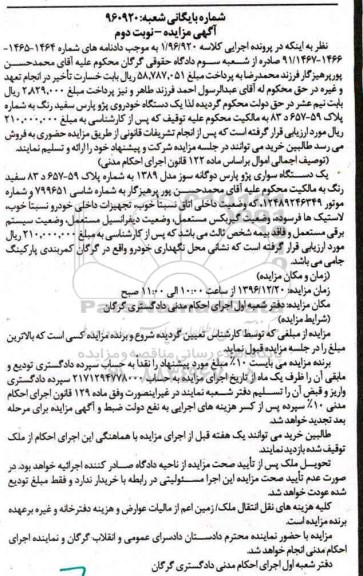 شماره بایگانی شعبه: ۹۶۰۹۲۰
آگهی مزایده - نوبت دوم
نظر به اینکه در پرونده اجرایی کلاسه ۱/۹۶/۹۲۰ به موجب دادنامه های شماره ۱۴۶۴-۱۴۶۵-
۹۱/۱۴۶۷-۱۴۶۶ صادره از شعبه سوم دادگاه حقوقی گرگان محکوم علیه آقای محمدحسن
پورپرهیزگار فرزند محمدرضا به پرداخت مبلغ ۵۸,۷۸۷,۰۵۱ ریال بابت خسارت تأخیر در انجام تعهد
و غیره در حق محکوم له آقای عبدالرسول احمد طاهر و نیز پرداخت مبلغ ۲,۸۲۹,۰۰۰ ریال
بابت نیم عشر در حق دولت محکوم گردیده لذا یک دستگاه خودروی پژو پارس سفید رنگ به شماره
پلاک ۵۹-۶۵۷ د ۸۳ به مالکیت محکوم علیه توقیف که پس از کارشناسی به مبلغ ۲۱۰,۰۰۰,۰۰۰
ریال مورد ارزیابی قرار گرفته است که پس از انجام تشریفات قانونی از طریق مزایده حضوری به فروش
می رسد طالبین خرید می توانند در جلسه مزایده شرکت و پیشنهاد خود را ارائه و تسلیم نمایند.
(توصیف اجمالی اموال براساس ماده ۱۲۲ قانون اجرای احکام مدنی)
یک دستگاه سواری پژو پارس دوگانه سوز مدل ۱۳۸۹ به شماره پلاک ۵۹-۶۵۷ د ۸۳ سفید
رنگ به مالکیت محکوم علیه آقای محمدحسن پورپرهیزگار به شماره شاسی ۷۹۹۶۵۱ و شماره
موتور ۱۲۴۸۹۲۴۶۳۴۹، که وضعیت داخلی اتاق نسبتاً خوب، تجهیزات داخلی خودرو نسبتاً خوب،
لاستیک ها فرسوده، وضعیت گیربکس مستعمل، وضعیت دیفرانسیل مستعمل، وضعیت سیستم
برقی مستعمل و فاقد بیمه شخص ثالث می باشد که پس از کارشناسی به مبلغ ۲۱۰,۰۰۰,۰۰۰ ریال
مورد ارزیابی قرار گرفته است که نشانی محل نگهداری خودرو واقع در گرگان کمربندی پارکینگ
جامی می باشد.
(زمان و مکان مزایده)
زمان مزایده: ۱۳۹۶/۱۲/۲۰ از ساعت ۱۰:۰۰ الی ۱۱:۰۰ صبح
مکان مزایده: دفتر شعبه اول اجرای احکام مدنی دادگستری گرگان
(شرایط مزایده)
مزایده از مبلغی که توسط کارشناس تعیین گردیده شروع و برنده مزایده کسی است که بالاترین
مبلغ را در جلسه مزایده قبول نماید.
برنده مزایده می بایست ۱۰٪ مبلغ مورد پیشنهاد را نقداً به حساب سپرده دادگستری تودیع و
مابقی آن را ظرف یک ماه از تاریخ اجرای مزایده به حساب ۲۱۷۱۲۹۴۷۷۸۰۰۰ سپرده دادگستری
واریز و قبض آن را تسلیم دفتر شعبه نمایند در غیراینصورت وفق ماده ۱۲۹ قانون اجرای احکام
مدنی ۱۰٪ سپرده پس از کسر هزینه های اجرایی به نفع دولت ضبط و آگهی مزایده برای مرحله
بعد تجدید خواهد شد.
طالبین خرید می توانند یک هفته قبل از اجرای مزایده با هماهنگی این اجرای احکام از ملک
توقیف شده بازدید نمایند.
تحویل ملک پس از تأیید صحت مزایده از ناحیه دادگاه صادر کننده اجرائیه خواهد بود. در
صورت عدم تأیید صحت مزایده این اجرا مسئولیتی در رابطه با خریدار ندارد و فقط مبلغ تودیع
شده عودت خواهد شد.
کلیه هزینه های نقل انتقال ملک/زمین اعم از مالیات عوارض و هزینه دفترخانه و غیره برعهده
برنده مزایده است.
مزایده با حضور نماینده محترم دادستان دادسرای عمومی و انقلاب گرگان و نماینده اجرای
احکام مدنی انجام خواهد شد.
دفتر شعبه اول اجرای احکام مدنی دادگستری گرگان